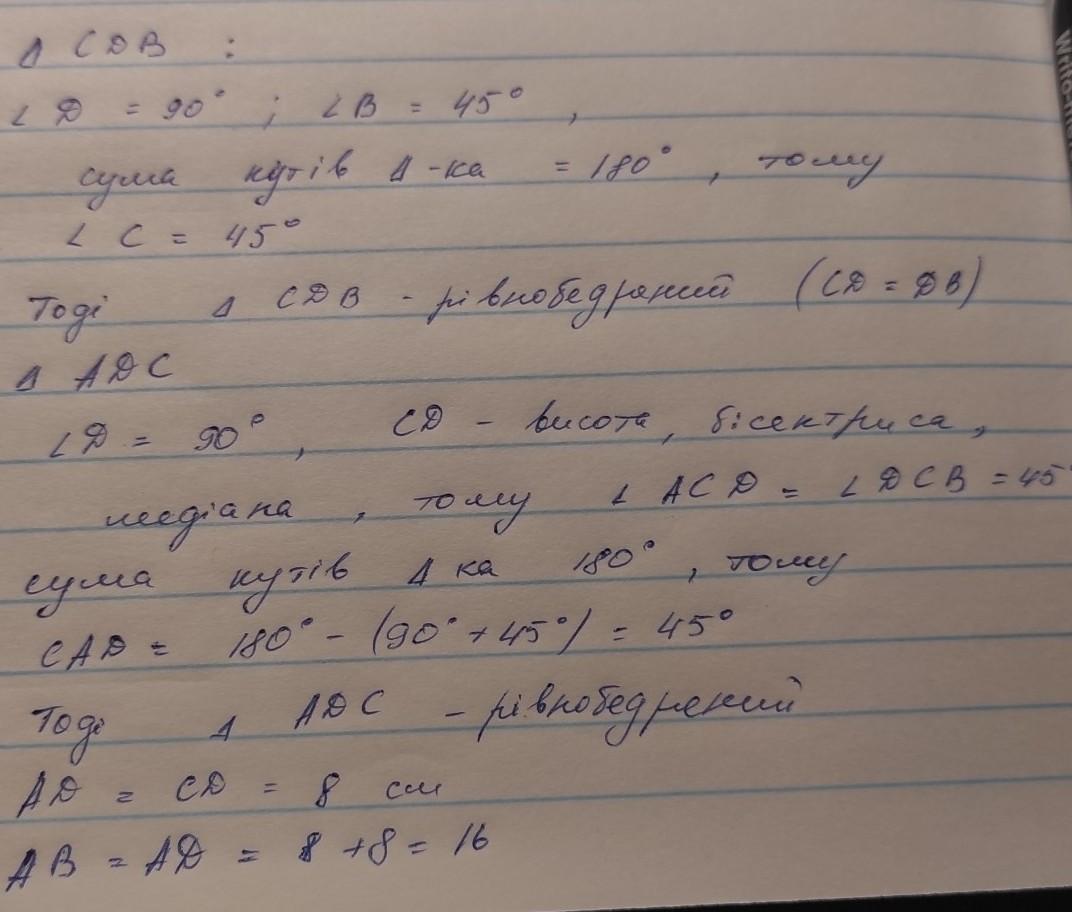 Δ CDB :
∠ D = 90° ; ∠ B = 45° ,
сума кутів Δ-ка = 180° , тому
∠ C = 45°
Тоді Δ CDB - рівнобедрений (CD = DB)
Δ ADC
∠D = 90° , CD - висота, бісектриса,
медіана , тому ∠ ACD = ∠ DCB = 45°
сума кутів Δ ка 180° , тому
CAD = 180° - (90° + 45°) = 45°
Тоді Δ ADC - рівнобедрений
AD = CD = 8 см
AB = AD = 8 + 8 = 16